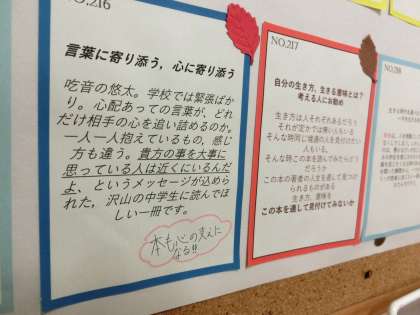 NO.216
言葉に寄り添う、心に寄り添う
吃音の悠太。学校では緊張ばか
り。心配あっての言葉が、どれ
だけ相手の心を追い詰めるのか。
一人一人抱えているもの、感じ
方も違う。貴方の事を大事に
思っている人は近くにいるんだ
よ、というメッセージが込めら
れた、沢山の中学生に読んでほ
しい一冊です。
本も心の支えに
なる!!
NO.217
自分の生き方、生きる意味とは？
考える人にお勧め
生き方は人それぞれあるだろう
それが定かでは無い人もいる
そんな時同じ境遇の人を見付けはい
人もいる。
そんな時この本を読んでみたらどう
だろうか
この本の著者の人生を通して見つけ
られるものがある
生き方、意味を
この本を通して見付けてみないか
NO.218